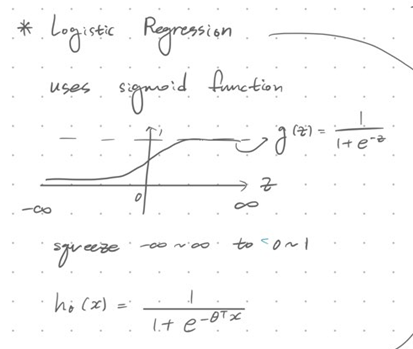 * Logistic Regression
uses sigmoid function
1
g(z) = 1 / (1 + e^-z)
0
z
-∞
∞
squeeze -∞ ~ ∞ to 0 ~ 1
h₀(x) = 1 / (1 + e^-θᵀx)